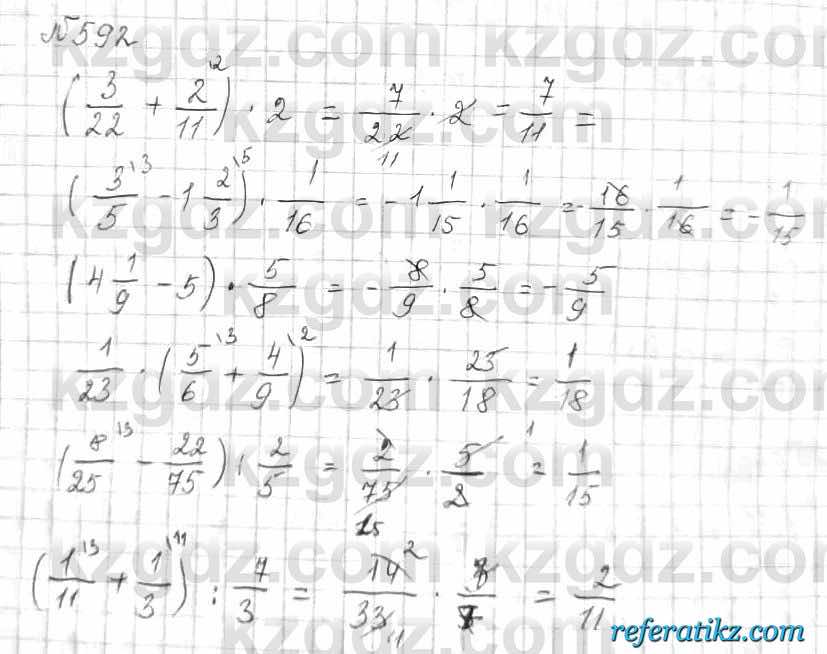 №592
(3/22 + 2/11\2) · 2 = 7/22 11 · 2 = 7/11 =
(3/5\3 - 1 2/3\5) · 1/16 = -1 1/15 · 1/16 = - 16/15 · 1/16 = - 1/15
(4 1/9 - 5) · 5/8 = - 8/9 · 5/8 = - 5/9
1/23 · (5/6\3 + 4/9\2) = 1/23 · 23/18 = 1/18
(8/25\3 - 22/75) : 2/5 = 2/75 15 · 5/2 1 = 1/15
(1/11\3 + 1/3\11) : 7/3 = 14 2/33 11 · 3/7 = 2/11
kzgdz.com
referatikz.com